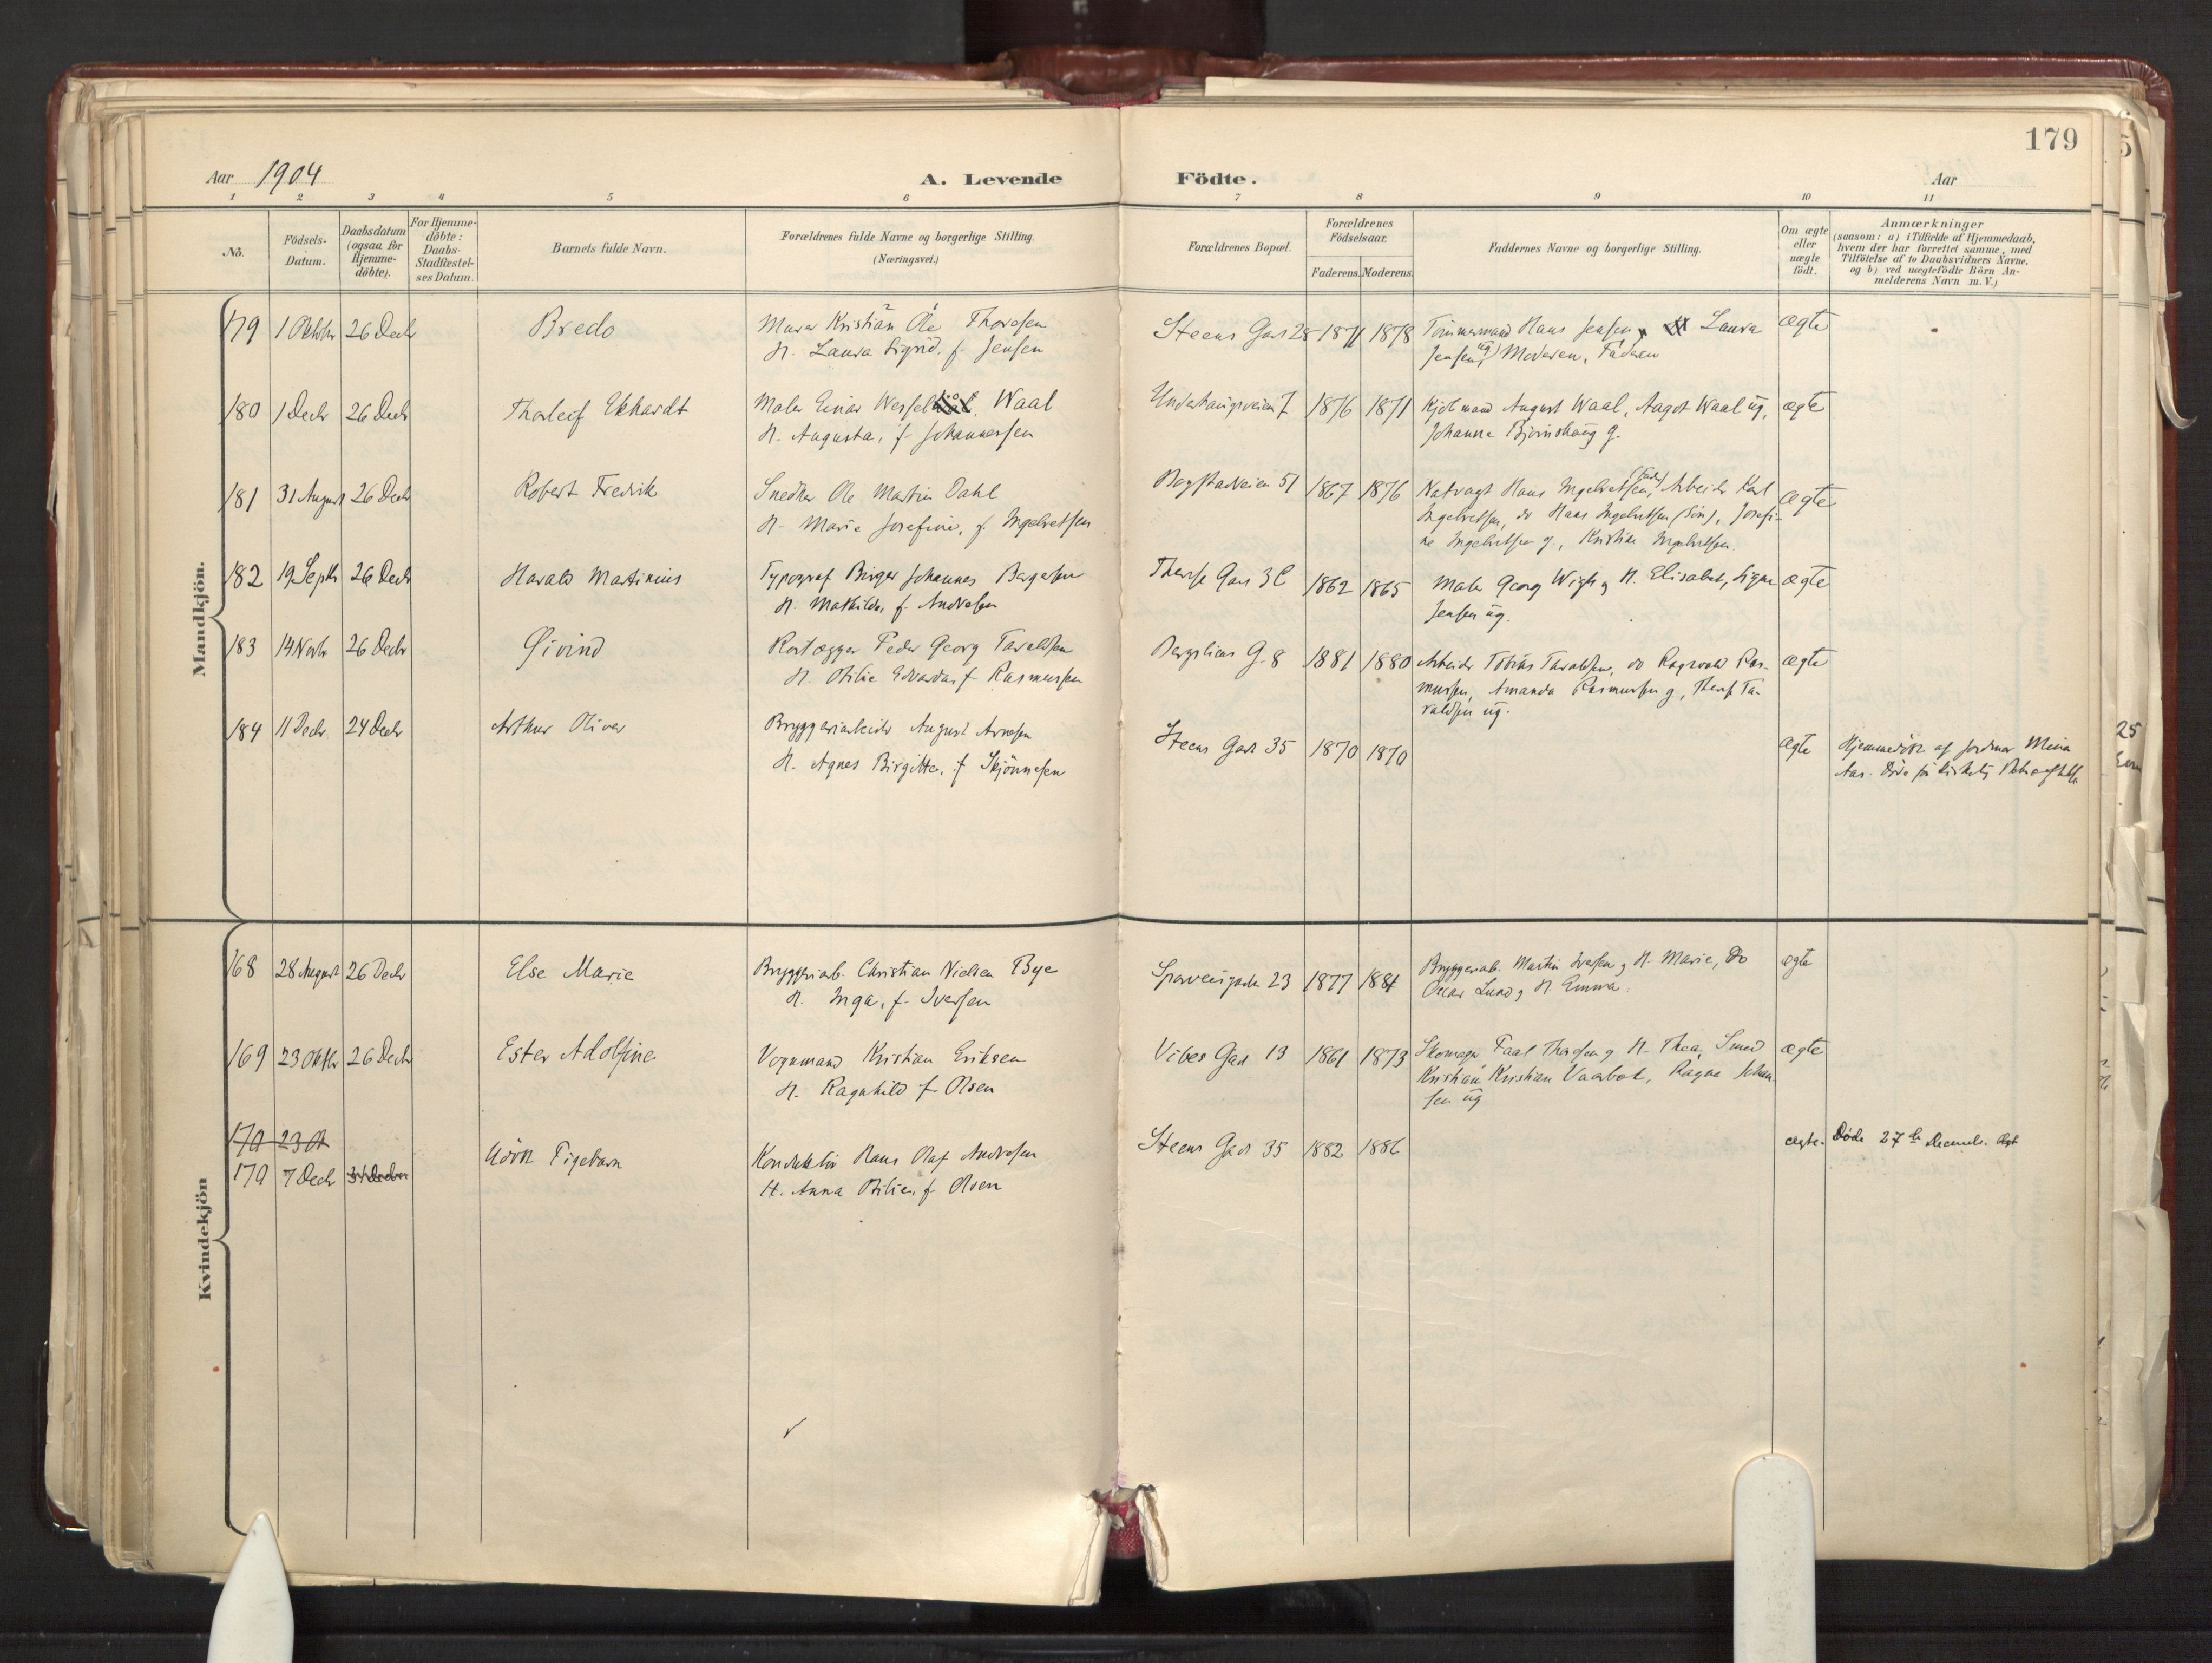 179
Aar 1904
A. Levende
Födte.
Aar
1 2 3 4 5 6 7 8 9 10 11
No.
Födsels-
Datum.
Daabsdatum
(ogsaa for
Hjemme-
döbte).
For Hjemme-
döbte:
Daabs-
Stadfæstel-
ses Datum.
Barnets fulde Navn.
Forældrenes fulde Navne og borgerlige Stilling.
(Næringsvei.)
Forældrenes Bopæl.
Forældrenes
Födselsaar.
Faderens. Moderens.
Faddernes Navne og borgerlige Stilling.
Om ægte
eller
uægte
födt.
Anmærkninger
(saasom: a) i Tilfælde af Hjemmedaab,
hvem der har forrettet samme, med
Tilföielse af to Daabsvidners Navne,
og b) ved uægtefödte Börn An-
melderens Navn m. V.)
Mandkjön.
179 1 Oktbr 26 Decbr Bredo Murer Kristian Ole Thoresen
H. Laura Sigrid, f. Jensen
Steens Gad 28 1871 1878 Tömmermand Hans Jensen, Laura
Jensen, ug, Moderen, Faderen
ægte
180 1 Decbr 26 Decbr Thorleif Ekhardt Maler Einar Wessel Waal
H. Augusta, f. Johannessen
Underhaugsveien 7 1876 1871 Kjöbmand August Waal, Aagot Waal ug,
Johanna Björnshaug g.
ægte
181 31 August 26 Decbr Robert Fredrik Snedker Ole Martin Dahl
H. Marie Josefine, f. Ingebretsen
Bogstadveien 51 1867 1876 Natvagt Hans Ingebretsen, (Fader) Arbeider Karl
Ingebretsen, do Hans Ingebretsen (Sön), Josefi-
ne Ingebretsen g, Kristine Ingebretsen.
ægte
182 19 Septbr 26 Decbr Harald Martinius Typograf Birger Johannes Bergersen
H. Mathilde, f. Andresen
Therese Gad 3C 1862 1865 Maler Georg Wigh og H. Elisabet, Signe
Jensen ug.
ægte
183 14 Novbr 26 Decbr Øivind Peder Georg Taraldsen
H. Otilie Edvarda, f. Rasmussen
Bergsliens G. 8 1881 1880 Arbeider Tobias Taraldsen, do Ragnvald Ras-
mussen, Amanda Rasmussen g, Ta-
raldsen ug.
ægte
184 11 Decbr. 24 Decbr Arthur Oliver Bryggeriarbeider August Arnesen
H. Agnes Birgitte, f. Skjönnesen
Steens Gad 35 1870 1870
ægte Hjemmedöbt af Jordmor Mina
Aas. Död för kirkelig
Kvindekjön
168 28 August 26 Decbr Else Marie Bryggeriarb. Christian Nielsen Bye
H. Inga, f. Iversen
Sporveisgaden 23 1877 1881 Bryggeriarb. Martin Iversen og H. Marie, do
Oscar Lund og H. Emma.
ægte
169 23 Oktbr 26 Decbr Ester Adolfine Vognmand Kristian Eriksen
H. Ragnhild f. Olsen
Vibes Gad 13 1861 1873 Skomager Paal Thoresen og H. Thea, Smed
Kristian Kristian Vaarbot, Ragna Johan-
sen ug
ægte
170 23 O
170 7 Decbr 31 Decbr Udöbt Pigebarn Konduktör Hans Olaf Andresen
H. Anna Otilie, f. Olsen
Steens Gad 35 1882 1886
ægte. Döde 27de Decemb.